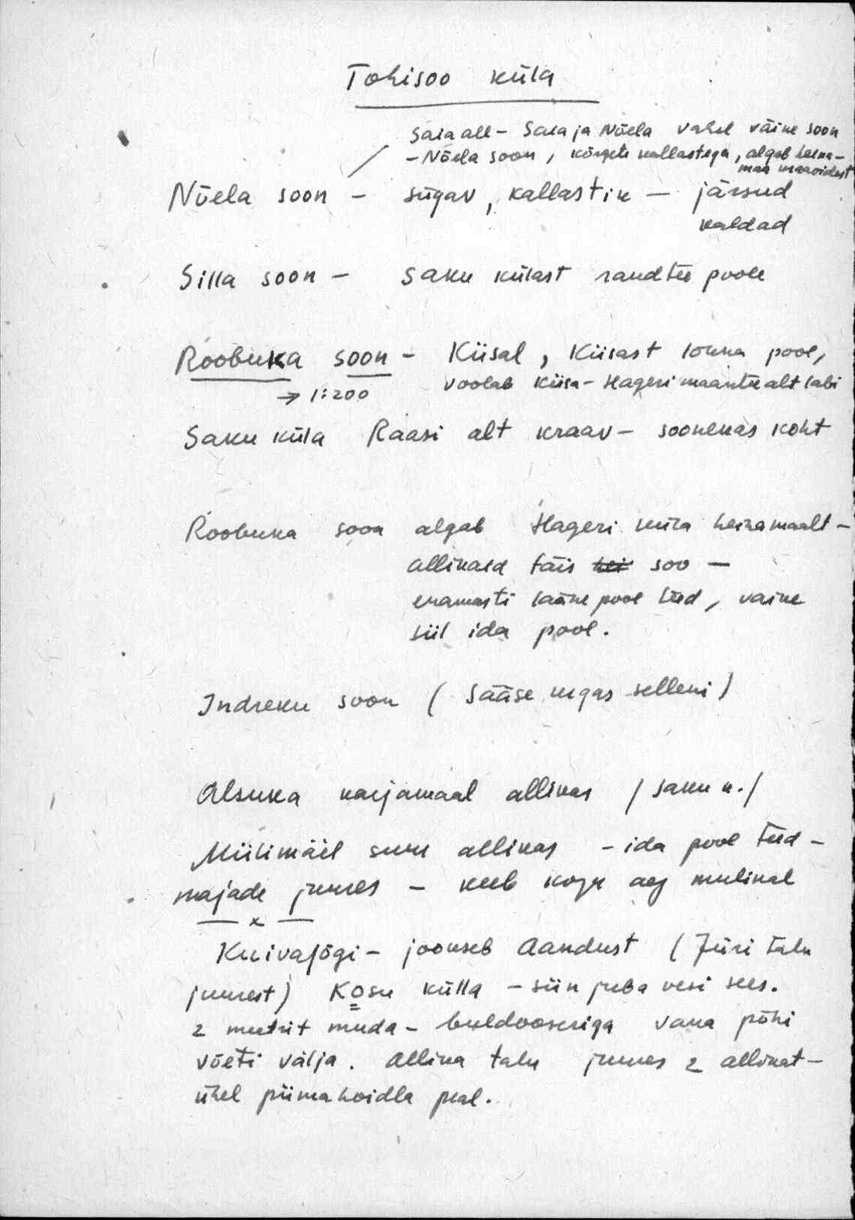 Tohisoo küla
Sara all - Sara ja Nõela vahel väine soon
- Nõela soon, kõrgete kallastega, algab heina-
maa
Nõela soon - sügav, kallastik - järsud
kaldad
Silla soon - Saku külast raudtee poole
Roobuka soon - Kiisal, Kiisast lõuna pool,
→ 1:200 voolab Kiisa - Hageri maantee alt läbi
Saku küla Raasi alt kraav - soonekas koht
Roobuka soon algab Hageri küla heinamaalt -
allikaid täis soo -
enamasti lääne pool teed, väine
siil ida pool.
Indreku soon ( Sääse selleni )
karjamaal allikas / Saku k. /
Miilimäel suur allikas - ida pool teed -
majade juures - keeb kogu aeg mulinal
— x —
Kuivajõgi - jookseb Aandust ( Jüri talu
juurest ) Kosu külla - siin juba vesi sees.
2 meetrit muda - buldooseriga vana põhi
võeti välja. Allika talu juures 2 allikat -
ühel piimahoidla peal.